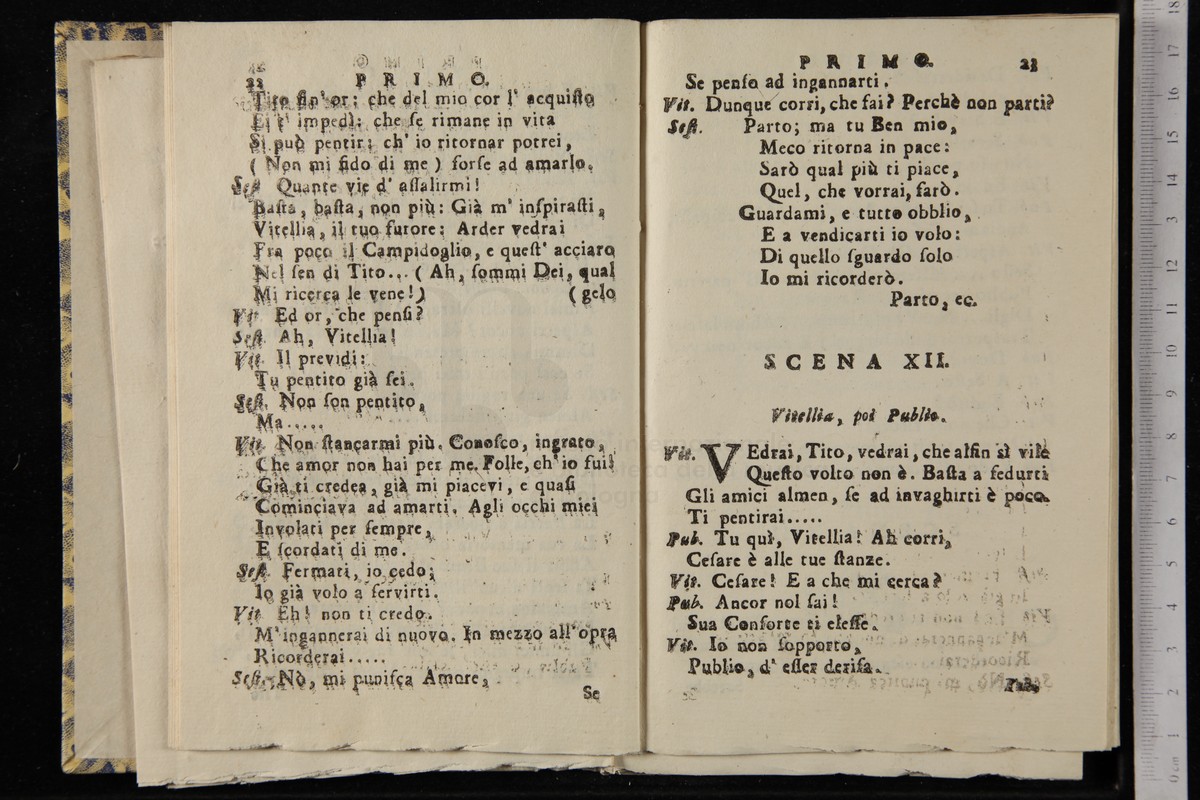 22
PRIMO.
Tito fin' or; che del mio cor l' acquiſto
Ei t' impedì; che ſe rimane in vita
Si può pentir; ch' io ritornar potrei,
( Non mi fido di me ) forſe ad amarlo.
Seſt. Quante vie d' aſſalirmi!
Baſta, baſta, non più: Già m' inſpiraſti,
Vitellia, il tuo furore; Arder vedrai
Fra poco il Campidoglio, e queſt' acciaro
Nel ſen di Tito... ( Ah, ſommi Dei, qual
Mi ricerca le vene!) ( gelo
Vit. Ed or, che penſi?
Seſt. Ah, Vitellia!
Vit. Il previdi:
Tu pentito già ſei.
Seſt. Non ſon pentito,
Ma.....
Vit. Non ſtancarmi più. Conoſco, ingrato,
Che amor non hai per me. Folle, ch' io fui!
Già ti credea, già mi piacevi, e quaſi
Cominciava ad amarti. Agli occhi miei
Involati per ſempre,
E ſcordati di me.
Seſt. Fermati, io cedo;
Io già volo a ſervirti.
Vit. Eh! non ti credo.
M' ingannerai di nuovo. In mezzo all' opra
Ricorderai.....
Seſt. Nò, mi puniſca Amore,
Se
PRIMO. 23
Se penſo ad ingannarti.
Vit. Dunque corri, che fai? Perchè non parti?
Seſt. Parto; ma tu Ben mio,
Meco ritorna in pace:
Sarò qual più ti piace,
Quel, che vorrai, farò.
Guardami, e tutto obblio,
E a vendicarti io volo:
Di quello ſguardo ſolo
Io mi ricorderò.
Parto, ec.
SCENA XII.
Vitellia, poi Publio.
Vit. VEdrai, Tito, vedrai, che alfin sì vile
Queſto volto non è. Baſta a ſedurti
Gli amici almen, ſe ad invaghirti è poco.
Ti pentirai.....
Pub. Tu quì, Vitellia! Ah corri,
Ceſare è alle tue ſtanze.
Vit. Ceſare! E a che mi cerca?
Pub. Ancor nol ſai!
Sua Conſorte ti eleſſe.
Vit. Io non ſopporto,
Publio, d' eſſer deriſa.
Pub.